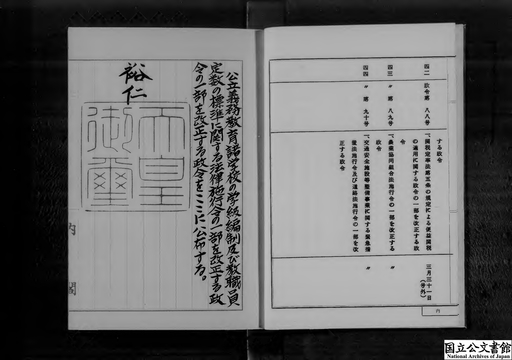 する政令
四二 政令第 八八号 「関税定率法第五条の規定による便益関税
の適用に関する政令の一部を改正する政
令 三月三十一日
(号外)
四三 〃 第 八九号 「農業協同組合法施行令の一部を改正する
政令 〃
四四 〃 第 九十号 「交通安全施設等整備事業に関する緊急措
置法施行令及び道路法施行令の一部を改
正する政令 〃
六
公立義務教育諸学校の学級編制及び教職員
定数の標準に関する法律施行令の一部を改正する政
令の一部を改正する政令をここに公布する。
裕仁
天皇
御璽
内閣
国立公文書館
National Archives of Japan